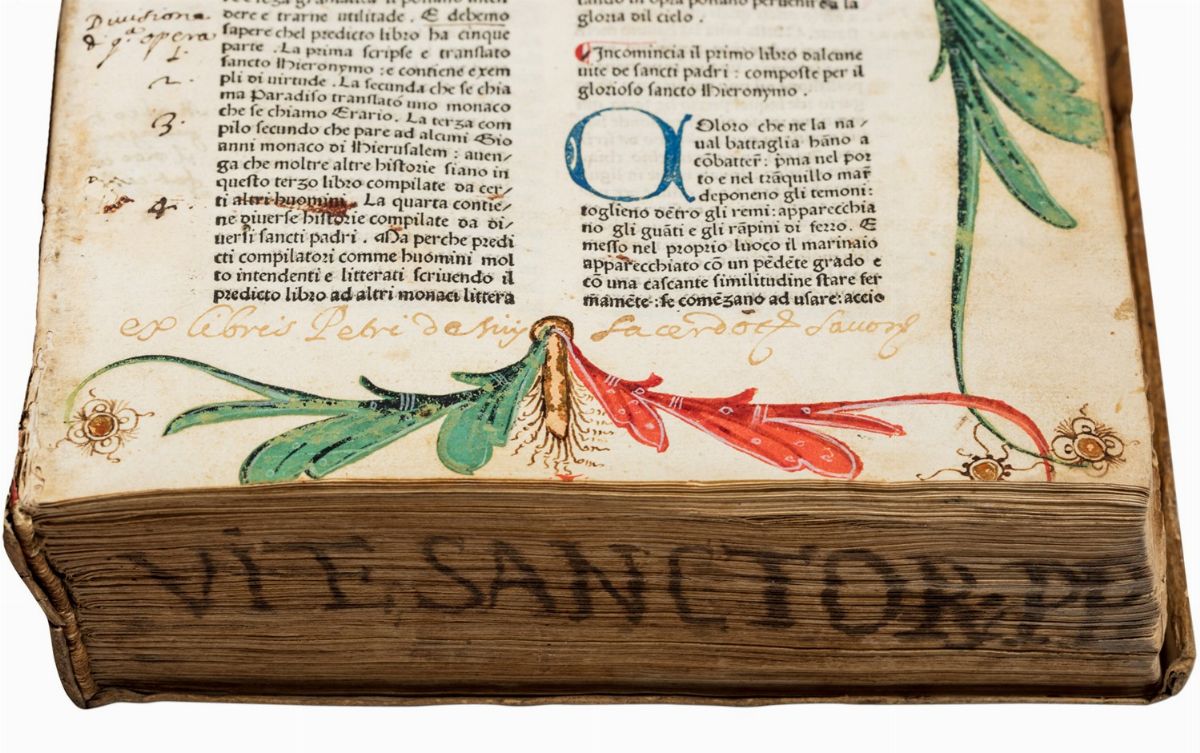 Divisione
dere e trarne utilitade . E debemo
sapere chel predicto libro ha cinque
parte . La prima scripse e translato
sancto Hieronymo : e contiene exem
pli di virtude . La secunda che se chia
ma Paradiso translato uno monaco
che se chiamo Erario . La terza com
pilo secundo che pare ad alcuni Gio
anni monaco di Hierusalem : auen/
ga che moltre altre historie siano in
questo terzo libro compilate da cer/
ti altri huomini . La quarta contie/
ne diuerse historie compilate da di/
uersi sancti padri . Ma perche predi
cti compilatori comme huomini mol
to intendenti e litterati scriuendo il
predicto libro ad altri monaci littera
1.
2.
3.
4.
gloria dil cielo .
Incomincia il primo libro dalcune
uite de sancti padri : composte per il
glorioso sancto Hieronymo .
Coloro che ne la na/
ual battaglia hãno a
cõbatter̃ : p̃ma nel por
to e nel trãquillo mar̃
deponeno gli temoni :
toglieno dẽtro gli remi : apparecchia
no gli guãti e gli rãpini di ferro . E
messo nel proprio luoco il marinaio
apparecchiato cõ un pẽdẽte grado e
cõ una cascante similitudine stare fer
mamẽte : se comẽzano ad usare : accio
ex libris Petri
VITE, SANCTOR. PP